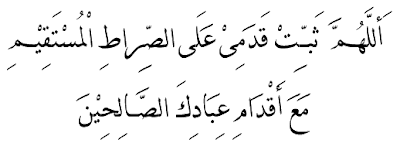 أَللّٰهُمَّ ثَبِّتْ قَدَمِىْ عَلَى الصِّرَاطِ الْمُسْتَقِيْمِ
مَعَ أَقْدَامِ عِبَادِكَ الصَّالِحِيْنَ